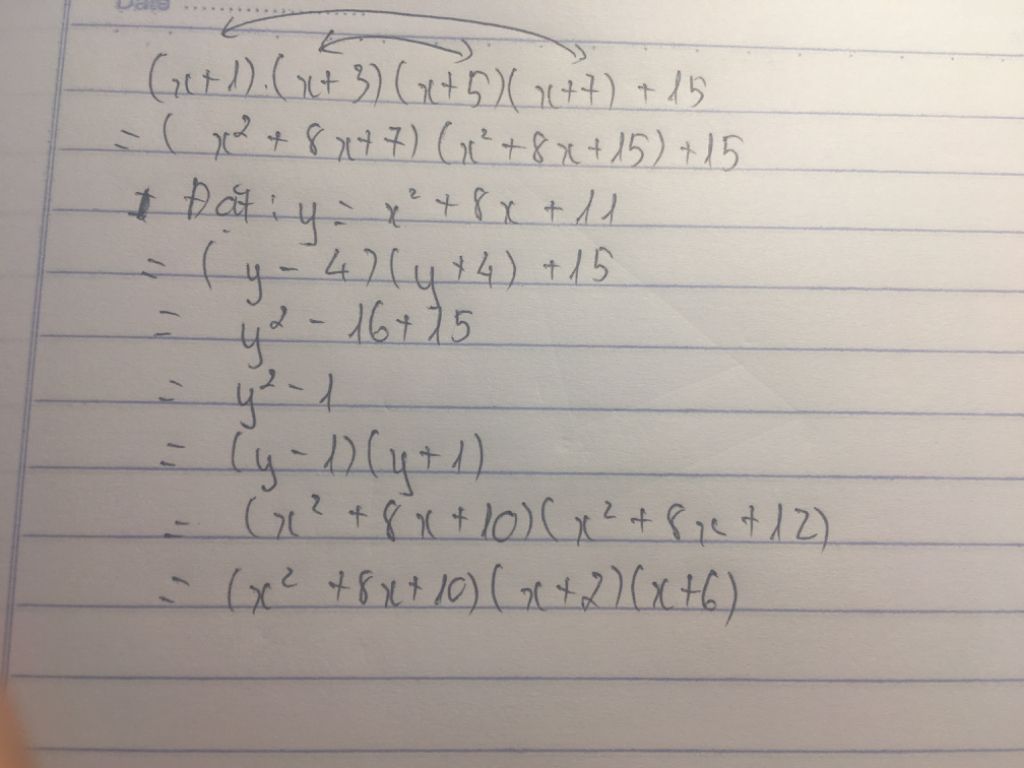 Date
(x+1).(x+3)(x+5)(x+7)+15
= (x²+8x+7)(x²+8x+15)+15
Đặt: y = x²+8x+11
= (y-4)(y+4)+15
= y²-16+15
= y²-1
= (y-1)(y+1)
= (x²+8x+10)(x²+8x+12)
= (x²+8x+10)(x+2)(x+6)